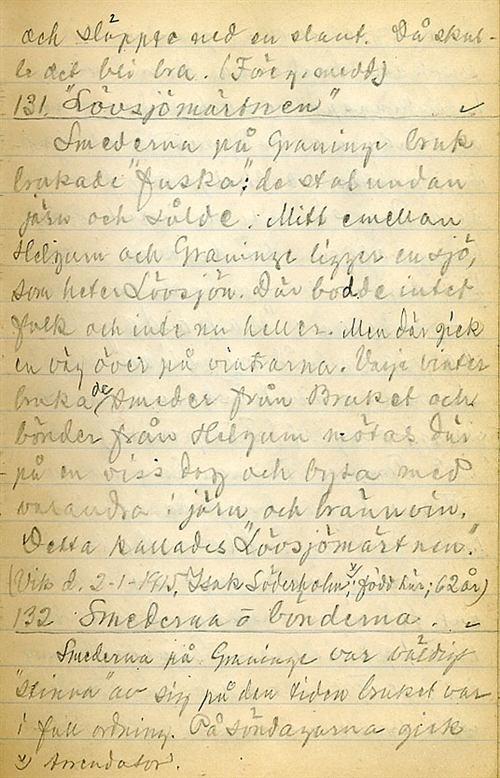 och släppte ned en slant. Då skul-
le det bli bra. (Föreg. medd.)
131. "Lövsjömärtnen"
Smederna på Graninge bruk
brukade "fuska": de stal undan
järn och sålde. Mitt emellan
Helgum och Graninge ligger en sjö,
som heter Lövsjön. Där bodde intet
folk och inte nu heller. Men där gick
en väg över på vintrarna. Varje vinter
brukade smeder från Bruket och
bönder från Helgum mötas där
på en viss dag och byta med
varandra i järn och brännvin.
Detta kallades "Lövsjömärtnen".
(Vik d. 2-1-1915, Isak Söderholm x), född här; 62 år)
132. Smederna o bönderna.
Smederna på Graninge var väldigt
"stinna" av sig på den tiden bruket var
i full ordning. På söndagarna gick
x) Arrendator.